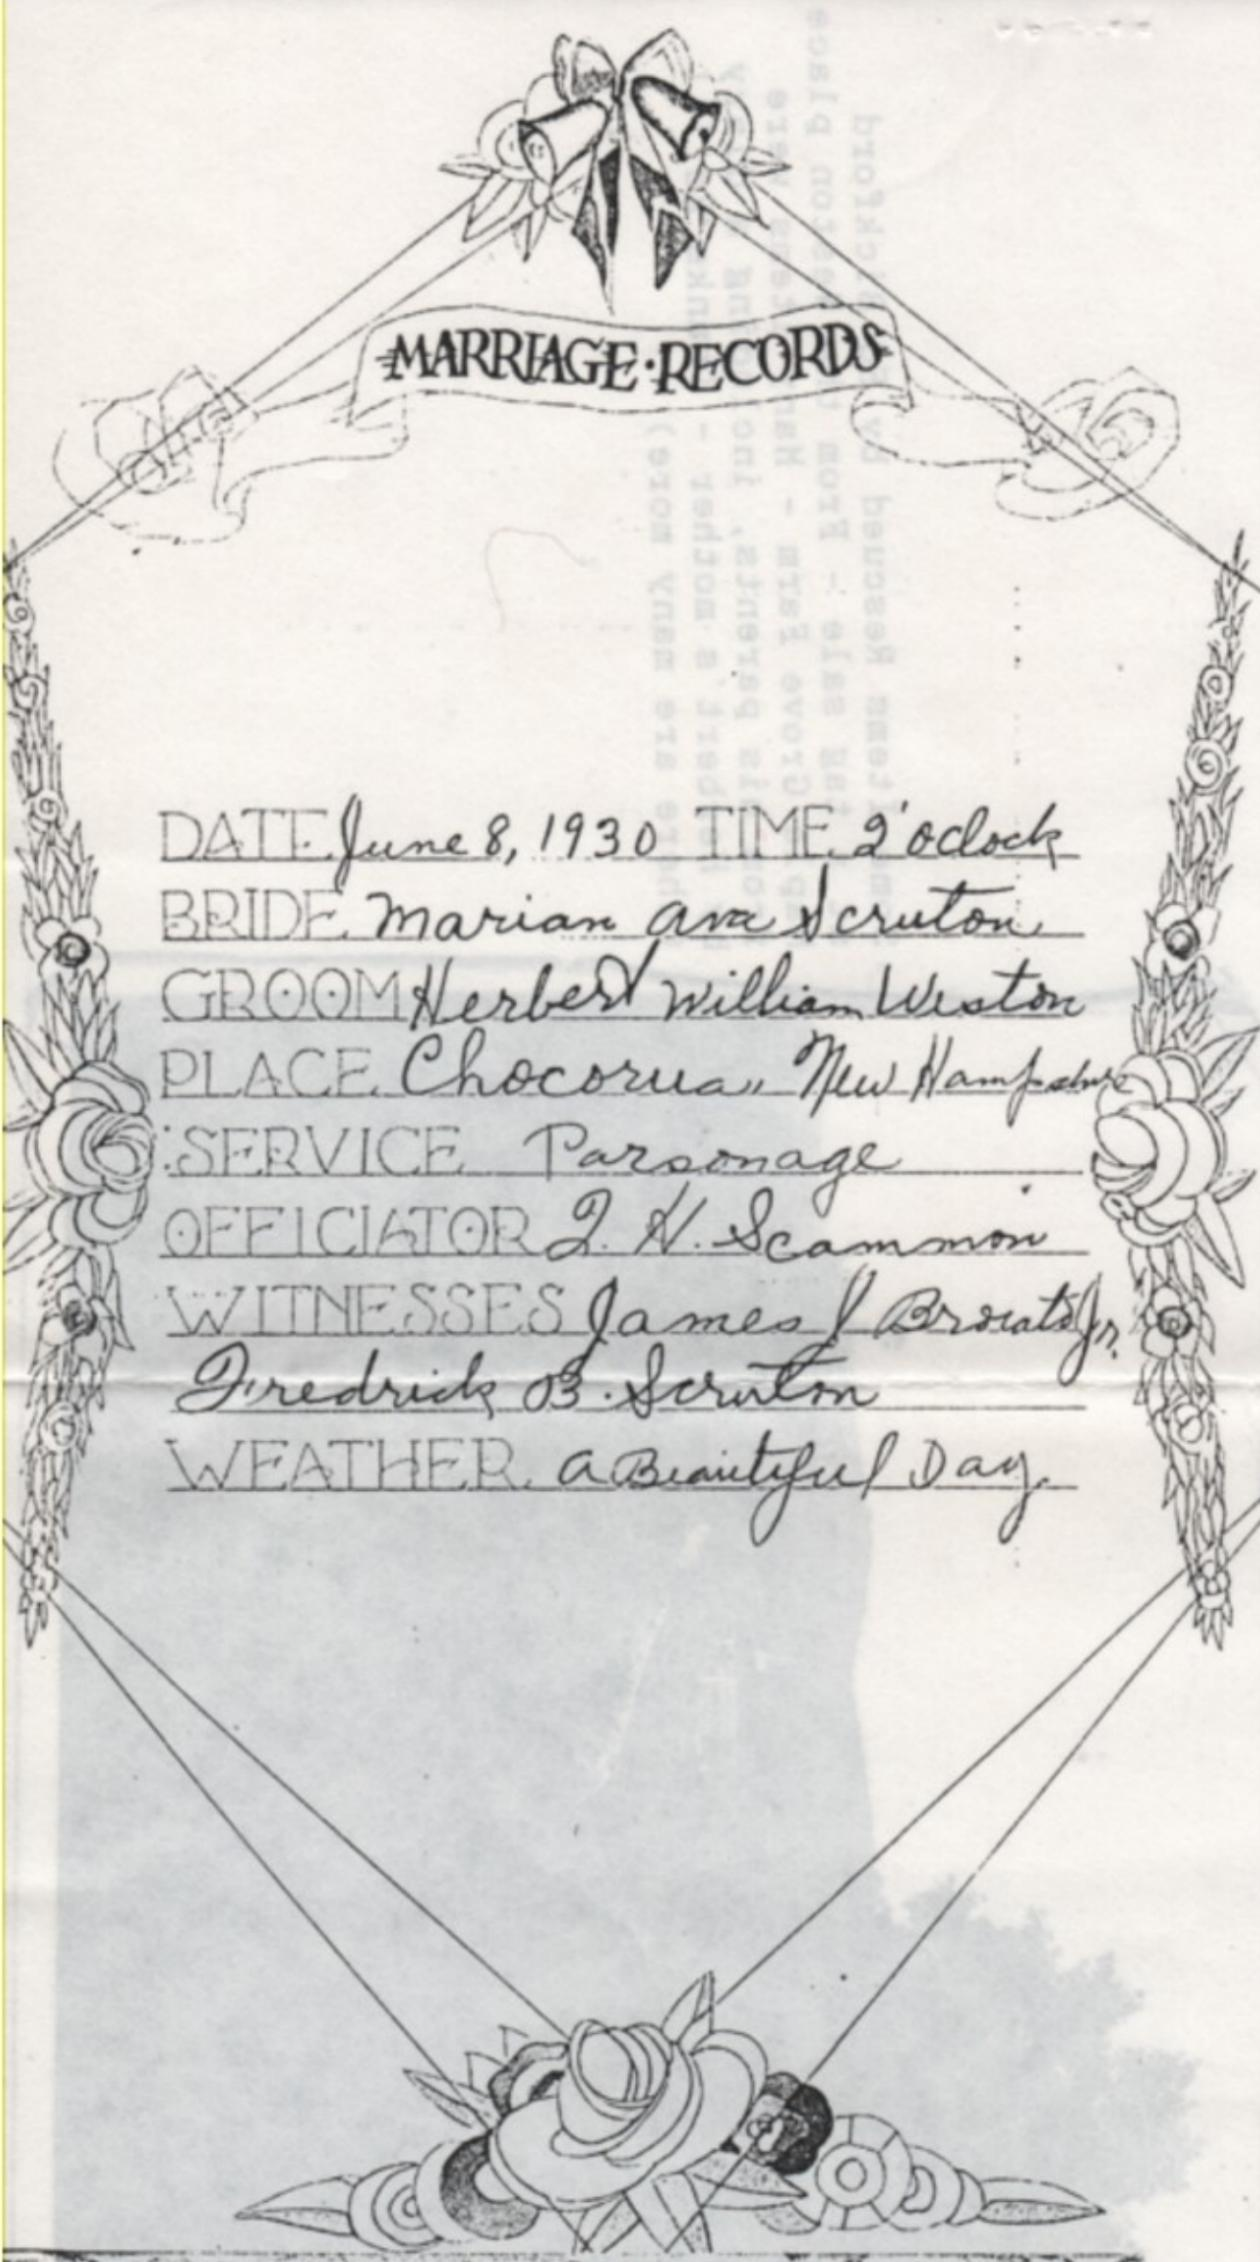 MARRIAGE·RECORDS
DATE June 8, 1930 TIME 2 o'clock
BRIDE Marian Ava Scruton
GROOM Herbert William Weston
PLACE Chocorua, New Hampshire
SERVICE Parsonage
OFFICIATOR H. Scammon
WITNESSES James J Jr.
Fredrick B. Scruton
WEATHER a Beautiful Day.